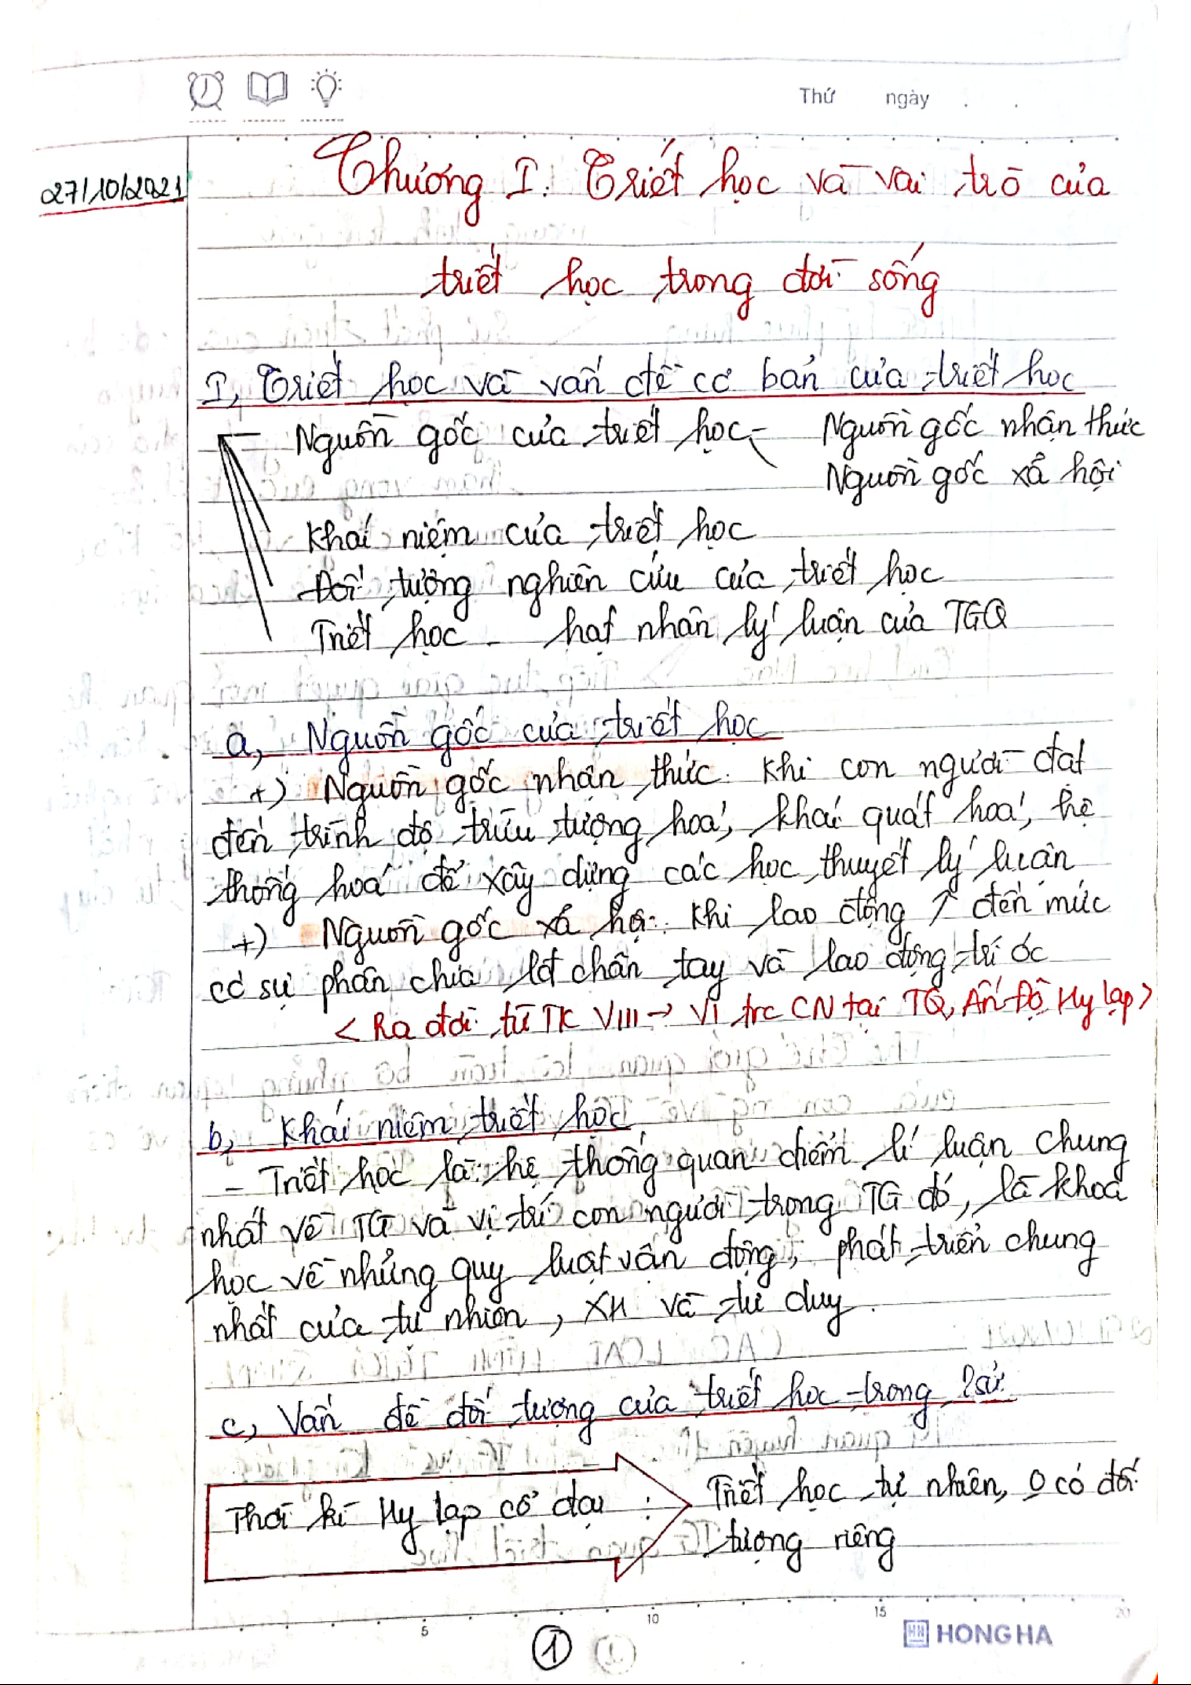 Thứ ngày . .
27/10/2021
Chương I. Triết học và vai trò của
triết học trong đời sống
I, Triết học và vấn đề cơ bản của triết học
Nguồn gốc của triết học - Nguồn gốc nhận thức
Nguồn gốc xã hội
Khái niệm của triết học
Đối tượng nghiên cứu của triết học
Triết học - hạt nhân lý luận của TGQ
a, Nguồn gốc của triết học
+) Nguồn gốc nhận thức: Khi con người đạt
đến trình độ trừu tượng hoá, khái quát hoá, hệ
thống hoá để xây dựng các học thuyết lý luận
+) Nguồn gốc xã hội: Khi lao động ↑ đến mức
có sự phân chia lđ chân tay và lao động trí óc
< Ra đời từ TK VIII → VI trc CN tại TQ, Ấn Độ, Hy lạp >
b, Khái niệm triết học
- Triết học là hệ thống quan điểm lí luận chung
nhất về TG và vị trí con người trong TG đó, là khoa
học về những quy luật vận động, phát triển chung
nhất của tự nhiên, XH và tư duy.
c, Vấn đề đối tượng của triết học trong lsử
Thời kì Hy lạp cổ đại : Triết học tự nhiên, 0 có đối
tượng riêng
5 10 15 20
HONG HA
1